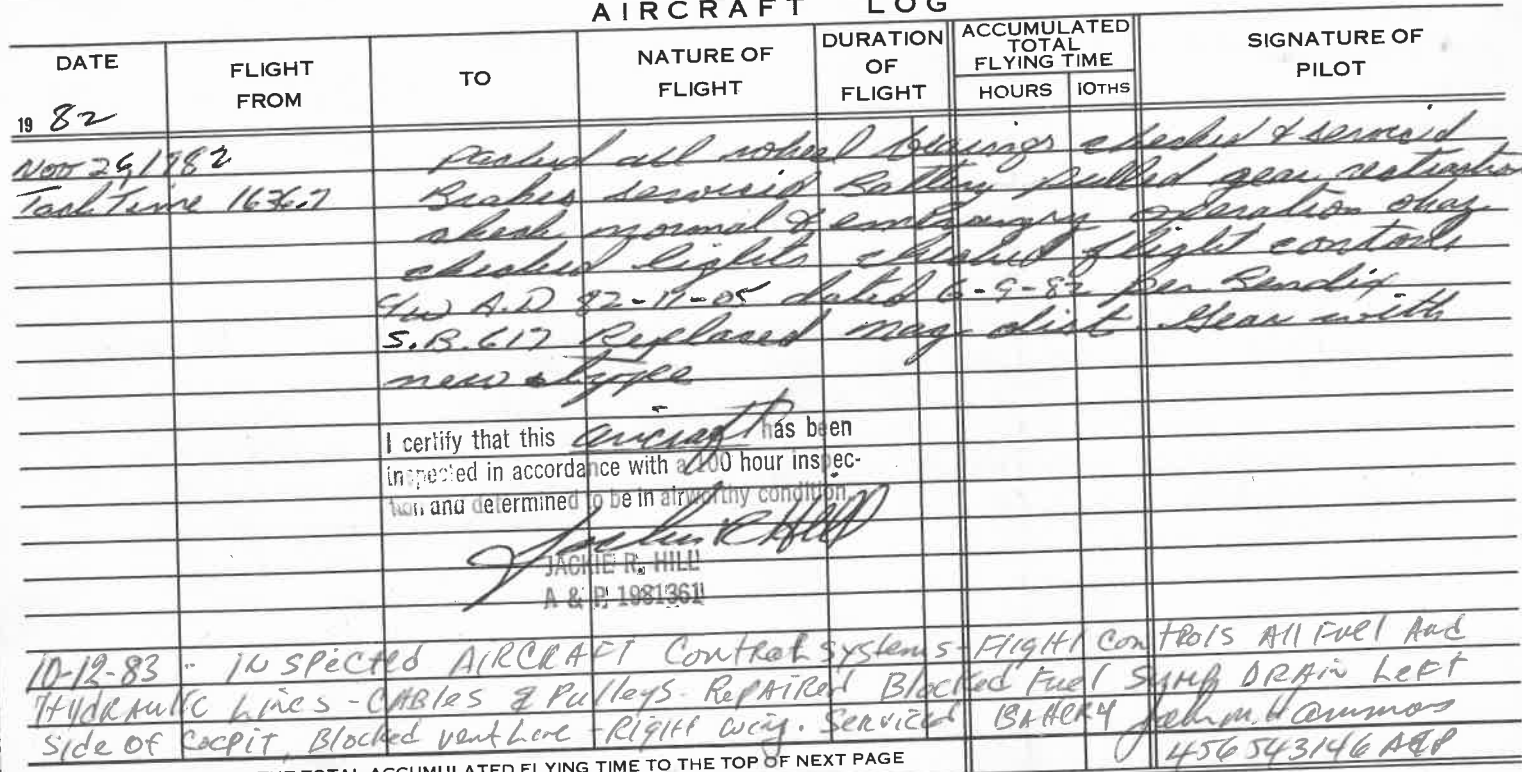 AIRCRAFT LOG
DATE
FLIGHT FROM
TO
NATURE OF FLIGHT
DURATION OF FLIGHT
ACCUMULATED TOTAL FLYING TIME
HOURS 10THS
SIGNATURE OF PILOT
19 82
Nov 26, 1982 Packed all wheel bearings checked & serviced
Tach Time 1636.7 Brakes serviced Battery pulled gear retraction
check normal & emergency operation okay
checked lights checked flight controls
C/W A.D 82-11-05 dated 6-9-82 per Bendix
S.B. 617 Replaced mag dist. Gear with
new type
I certify that this aircraft has been
inspected in accordance with a 100 hour inspec-
tion and determined to be in airworthy condition.
Jackie R Hill
JACKIE R. HILL
A & P 1981361
10-12-83 - INSPECTED AIRCRAFT Control systems - Flight Controls All Fuel And
Hydraulic Lines - CABles & Pulleys - Repaired Blocked Fuel Sump DRAIN Left
Side of Cocpit, Blocked vent Line - Right wing. Serviced BAttery John M. Hammos
456543146 A&P
TOTAL ACCUMULATED FLYING TIME TO THE TOP OF NEXT PAGE